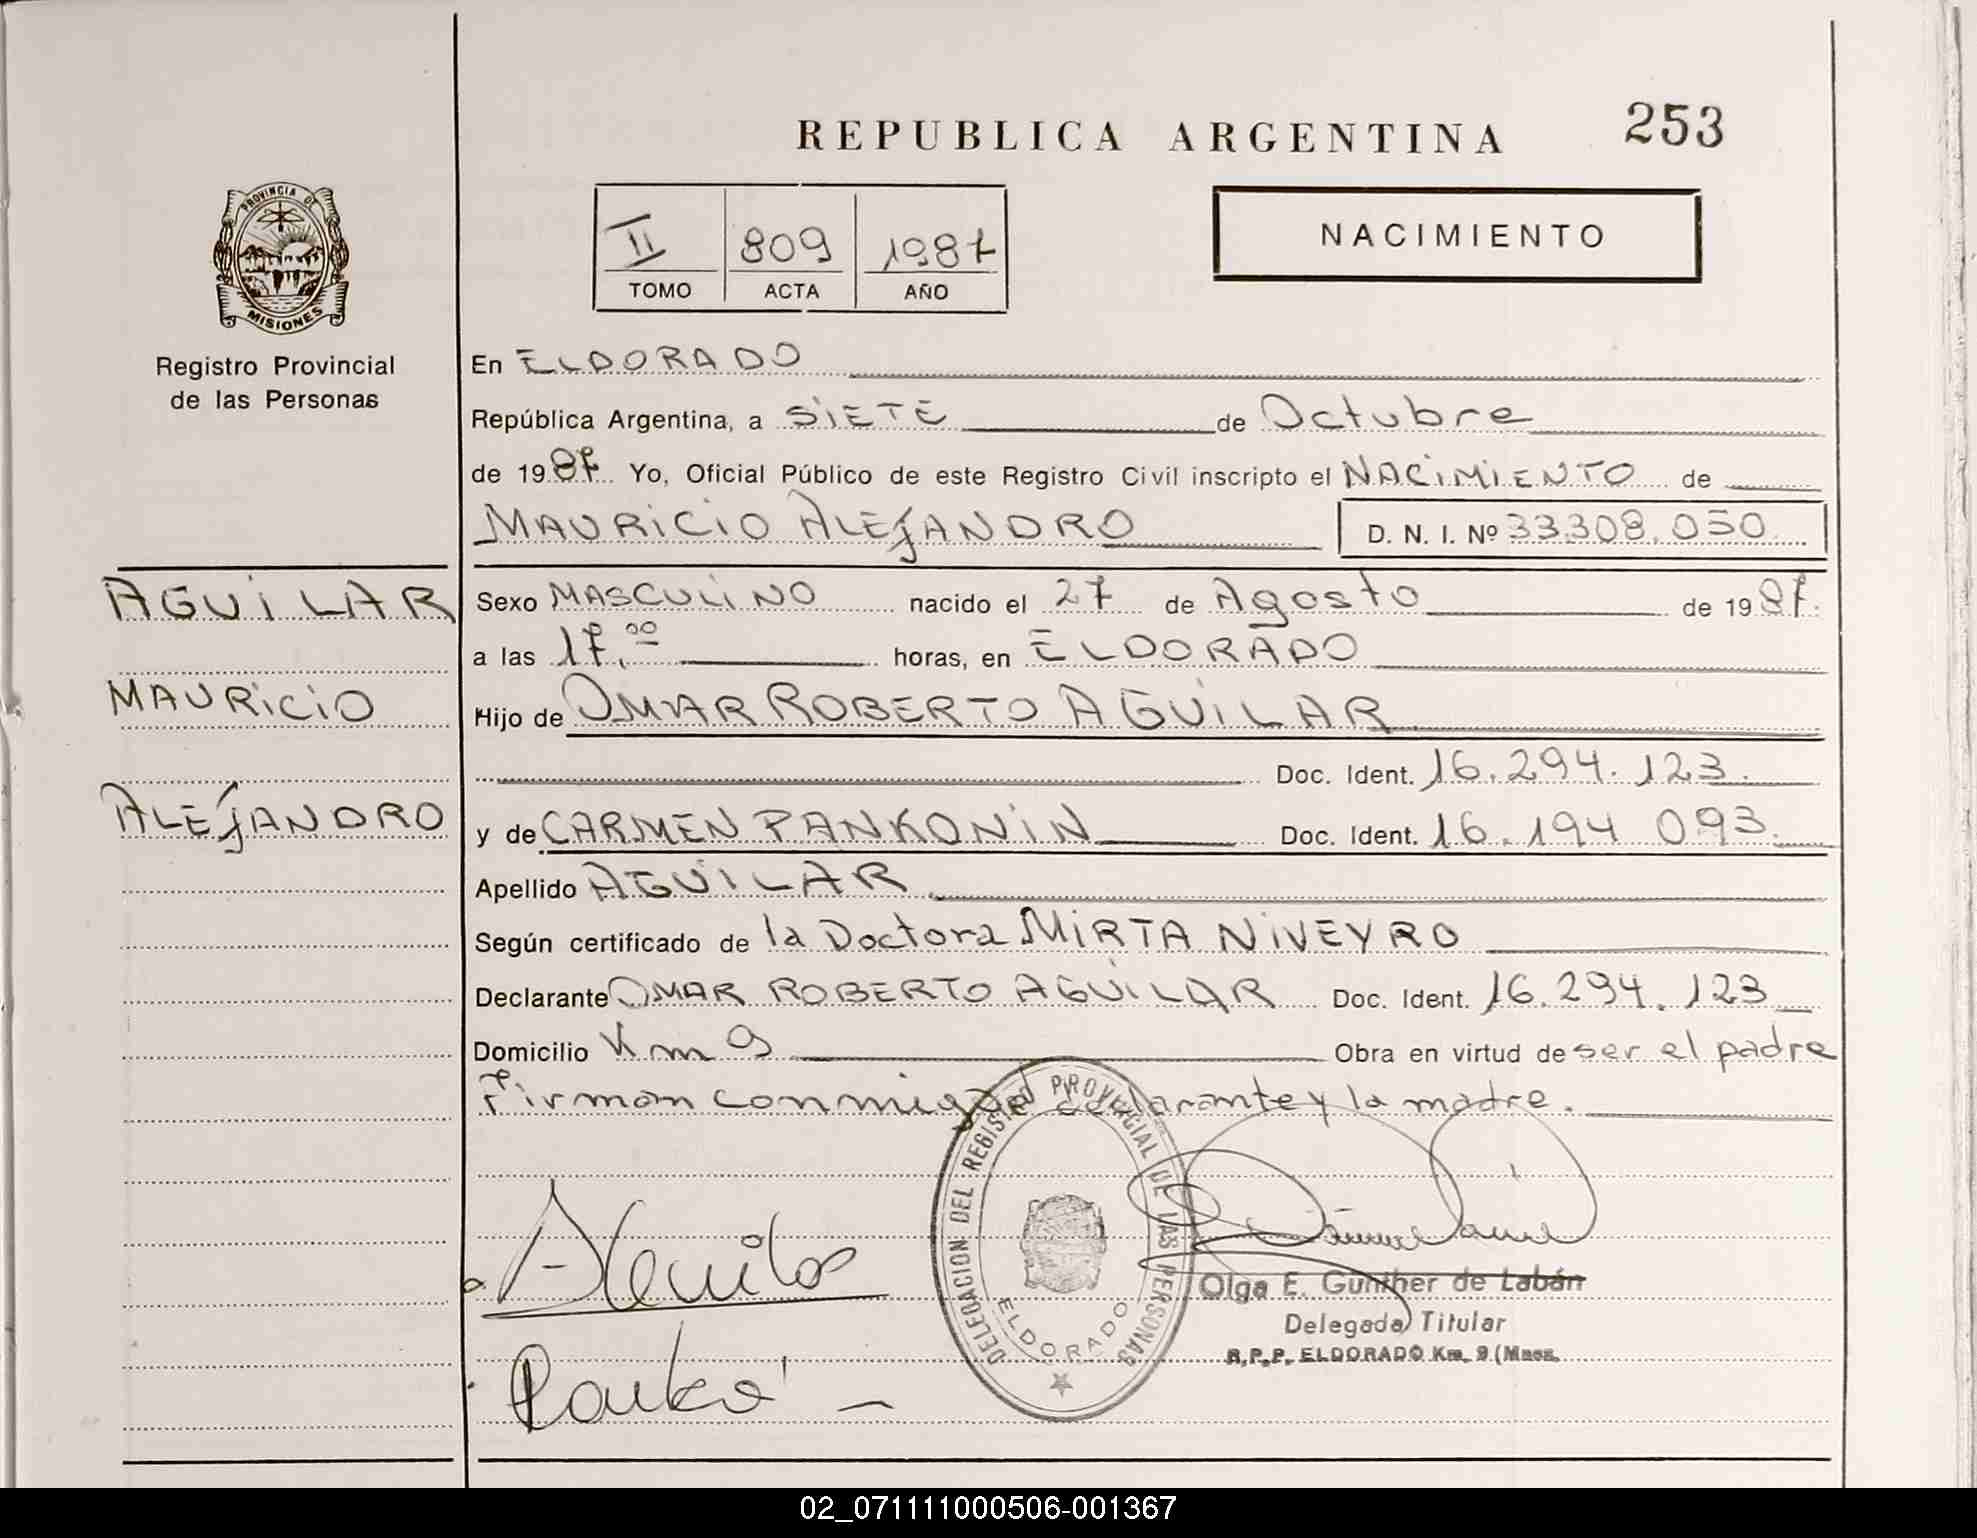 REPUBLICA ARGENTINA
253
PROVINCIA DE
MISIONES
Registro Provincial
de las Personas
II 809 1987
TOMO ACTA AÑO
NACIMIENTO
En ELDORADO
República Argentina, a SIETE de Octubre
de 1987 Yo, Oficial Público de este Registro Civil inscripto el NACIMIENTO de
MAURICIO ALEJANDRO D. N. I. Nº 33.308.050
AGUILAR
MAURICIO
ALEJANDRO
Sexo MASCULINO nacido el 27 de Agosto de 1987
a las 17,00 horas, en ELDORADO
Hijo de OMAR ROBERTO AGUILAR
Doc. Ident. 16.294.123.
y de CARMEN PANKONIN Doc. Ident. 16.194 093.
Apellido AGUILAR
Según certificado de la Doctora MIRTA NIVEYRO
Declarante OMAR ROBERTO AGUILAR Doc. Ident. 16.294.123
Domicilio Km 9 Obra en virtud de ser el padre
Firman conmigo el declarante y la madre.
DELEGACION DEL REGISTRO PROVINCIAL DE LAS PERSONAS
ELDORADO
Olga E. Gunther de Labán
Delegada Titular
R.P.P. ELDORADO Km. 9 (Mnes.
02_071111000506-001367